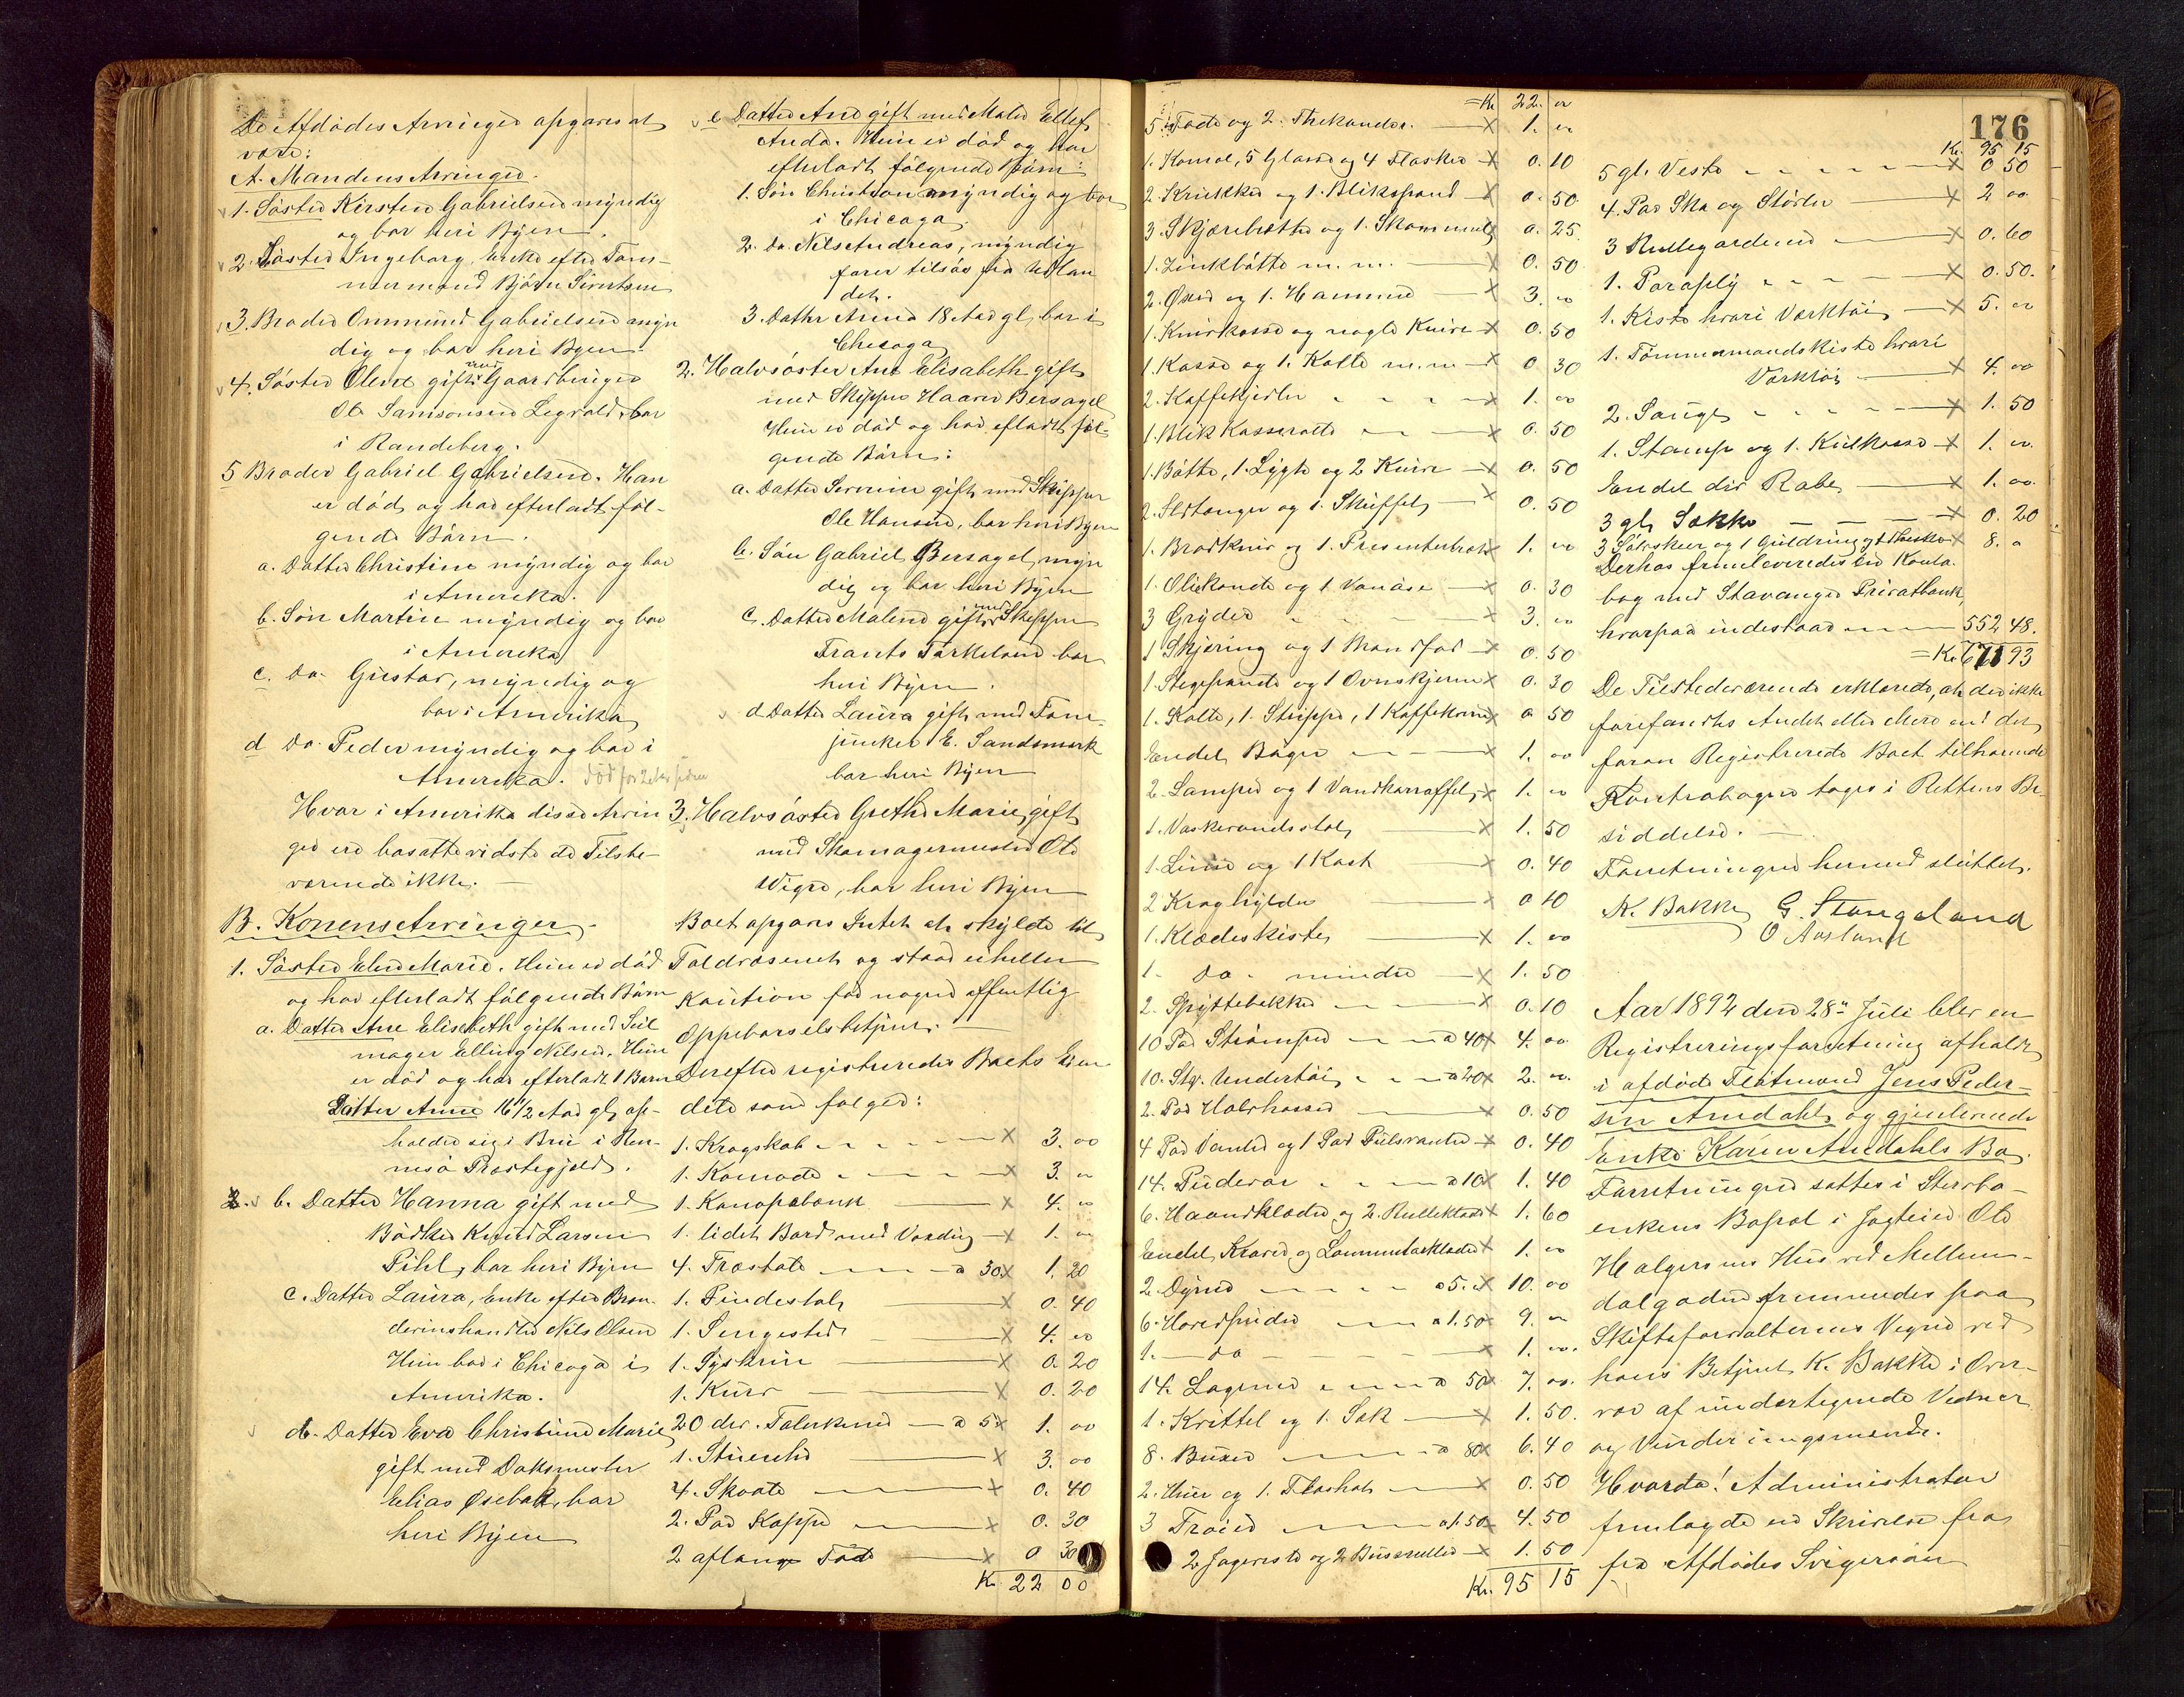 De Afdödes Arvinger opgaves at
være:
A. Mandens Arvinger.
1. Söster Kirsten Gabrielsen myndig
og bor heri Byen.
2. Söster Ingeborg, Enke efter Töm-
mermand Björn Sivertsen
3. Broder Ommund Gabrielsen myn
dig og bor heri Byen.
4. Söster Olene gift med Gaardbruger
Ole Samsonsen Legvold, bor
i Randeberg.
5 Broder Gabriel Gabrielsen. Han
er död og har efterladt föl-
gende Börn.
a. Datter Christine myndig og bor
i Amerika.
b. Sön Martin myndig og bor
i Amerika
c. Do. Gustav, myndig og
bor i Amerika
d Do. Peder myndig og bor i
Amerika. död for 2 Aar siden
Hvor i Amerika disse Arvin
ger ere bosatte vidste de Tilste-
værende ikke.
B. Konens Arvinger
1. Söster Elen Marie. Hun er död
og har efterladt fölgende Börn
a. Datter Ane Elisabeth gift med Seil
mager Elling Nilsen. Hun
er död og har efterladt 1 Barn
Datter Anne 16 1/2 Aar gl, op-
holder sig i Bru i Ren-
nesö Præstegjeld.
b. Datter Hanna gift med
Bödker Knud Larsen
Pihl, bor heri Byen
c. Datter Laura, Enke efter Bræn-
devinshandler Nils Olsen
Hun bor i Chicago i
Amerika.
d. Datter Eva Christine Marie
gift med Doksmester
EliasÖsebak, bor
heri Byen
e Datter Ane gift med Maler Ellef
Anda. Hun er död og har
efterladt fölgende Börn:
1. Sön Christian myndig og bor
i Chicago
2. Do. Nils Andreas, myndig
farer tilsös fra Udlan
det.
3. Datter Anna 18 Aar gl, bor i
Chicago
2. Halvsöster Ane Elisabeth gift
med Skipper Haaver Bersagel
Hun er död og har efterladt föl-
gende Börn:
a. Datter Serine gift med Skipper
Ole Hansen, bor heri Byen
b. Sön Gabriel Bersagel, myn
dig og bor heri Byen
c. Datter Malene gift med Skipper
Frants Torkelsen bor
heri Byen.
d Datter Laura gift med Töm-
junker E. Sandsmark
bor heri Byen
3. Halvsöster Grethe Marie, gift
med Skomagermester Ole
Vigre, bor heri Byen
Boet opgaves Intet at skylde til
Toldvæsenet og staar eiheller
Kaution for nogen offentlig
Oppebörselsbetjent.
Derefter registreredes Boets Eien
dele som fölger:
1. Kragskab - - - - X 3. 00
1. Komode - - - - X 3. 00
1. Kanapebænk X 4. 00
1. lidet Bord med Voxdug X 1. 00
4. Træstole - - - a 30 X 1. 20
1. Pindestol X 0. 40
1. Sengested X 4. 00
1. Syskrin X 0. 20
1. Kurv X 0. 20
20 div. Talerkener - a 5 X 1. 00
1. Stueuhr X 3. 00
4. Skaale X 0. 40
2. Par Kopper X 0. 30
2 aflange Fade X 0 30
Kr. 22 00
= Kr. 22. 00
5 Fade og 2 Thekander. X 1. 00
1. Komal, 5 Glas og 4 Flasker X 0. 10
2. Krukker og 1. Blikspand X 0. 50
3. Skjærebrætter og 1. Skammel X 0. 25
1. Zinkbötte m. m. X 0. 50
2. Öxer og 1. Hammer X 3. 00
1. Knivkasse og nogle Knive X 0. 50
1. Kasse og 1. Kolle m. m X 0 30
2. Kaffekjedler X 1. 00
1. Blik Kasserolle X 0. 50
1. Bötte, 1. Lygte og 2 Knive X 0. 50
2. Ildtænger og 1. Skuffel X 0. 50
1. Brödkniv og 1. Presenterbræt X 1. 00
1. Oliekande og 1 Vanåse X 0. 30
3 Gryder X 3. 00
1 Skjæring og 1 Brandfad X 0. 50
1. Stegepande og 1 Ovnskjerm X 0. 30
1. Kolle, 1. Strippe, 1 Kaffekværn X 0 50
Endel Böger X 1. 00
2. Lamper og 1 Vandkaraffel X 1. 00
1. Vaskevandsstol X 1. 50
1. Liner og 1 Kost X 0. 40
2 Kroghylder X 0 10
1. Klædeskiste X 1. 00
1. do. mindre X 1. 50
2. Spyttebakker X 0. 10
10 Par Strömper - - a 40 X 4. 00
10. Stk. Undertöi - - a 20 X 2. 00
2. Par Halvhoser X 0. 50
4 Par Vanter og 1 Par Pulsvanter X 0. 40
14. Pudevar - - - a 10 X 1. 40
6. Haandklæder og 2. Rulleklæder X 1. 60
Endel Kraver og Lommetörklæder X 1. 00
2. Dyner - - - a 5. X 10. 00
6. Hovedpuder - - a 1.50 X 9. 00
1. do X 1. 00
14. Lagener - - - a 50 X 7. 00
1. Kittel og 1. Sæk X 1. 50
8. Buxer - - - a 80 X 6. 40
2. Huer og 1. Flashat X 0. 50
3 Tröier - - - a 1.50 X 4. 50
2 Jageveste og 2 Busseruller X 1. 50
Kr. 95 15
176
Kr. 95 15
5 gl. Veste X 0 50
4. Par Sko og Stövler X 2 00
3 Rullegardiner X 0. 60
1. Paraply X 0. 50.
1. Kiste hvori Værktöi X 5. 00
1. Tömmermandskiste hvori
Værktöi X 4. 00
2. Sauge X 1. 50
1. Stamp og 1. Kulkasse X 1. 00
Endel div Rabe X 1. 00
3 gl. Sække X 0. 20
3 Sölvskeer og 1 Guldring og 1 Theske X 8. 0
Derhos fremleveredes en Konta-
bog med Stavanger Privatbank,
hvorpaa indestaar - - - 552 48.
= Kr. 671 93
De Tilstedeværende erklærede, at der ikke
forefandtes Andet eller Mere end det
foran Registrerede Boet tilhörende
Kontrabogen toges i Rettens Be-
siddelse.
Forretningen hermed sluttet.
K. Bakke G. Stangeland
O Aasland
Aar 1892 den 28de Juli blev en
Registreringsforretning afholdt
i afdöde Flötmand Jens Peder-
sen Aredahls og gjenlevende
Enke Karen Aredahls Bo.
Forretningen sattes i Stervbo-
enkens Bopæl i Jagteier Ole
Holgersens Hus ved Mellem-
dalgaden fremmedes paa
Skifteforvalterens Vegne ved
hans Betjent K. Bakke i Over-
vær af undertegnede Vidner
og Vurderingsmænd.
Hvorda! Administrator
fremlagde en Skrivelse fra
fra Afdödes Svigersön